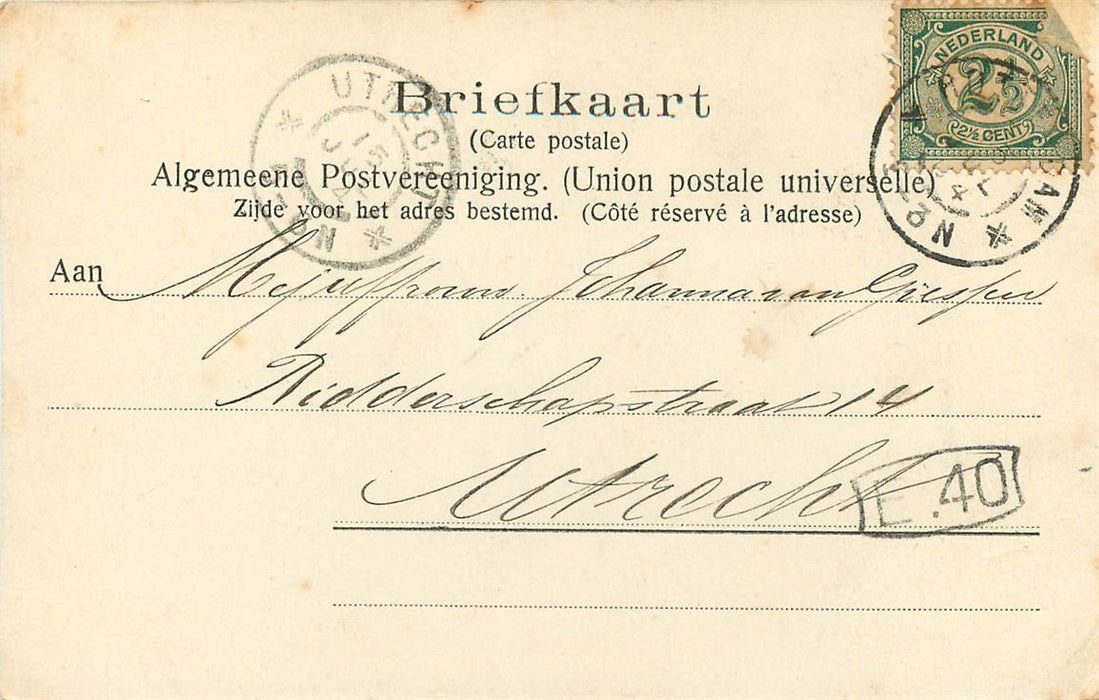 NEDERLAND
2½
2½ CENT
UTRECHT
Briefkaart
(Carte postale)
Algemeene Postvereeniging. (Union postale universelle)
Zijde voor het adres bestemd. (Côté réservé à l'adresse)
Aan Mejuffrouw Johanna van
Ridderschapstraat 14
Utrecht
E.40